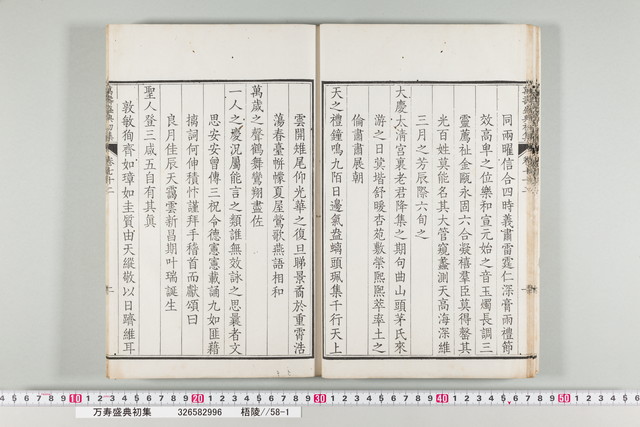 同兩曜信合四時義肅雷霆仁深膏雨禮節
效高卑之位樂和宣元始之音玉燭長調三
靈薦祉金甌永固六合凝禧羣臣莫得罄其
光百姓莫能名其大管窺蠡測天高海深維
三月之芳辰際六旬之
大慶太清宮裏老君降集之期句曲山頭茅氏來
游之日蓂堦舒暖杏苑敷榮熙熙萃率土之
倫肅肅展朝
天之禮鐘鳴九陌日邊氣盎螭頭珮集千行天上
雲開雉尾仰光華之復旦睇景喬於重霄浩
蕩春臺帡幪夏屋鶯歌燕語相和
萬歲之聲鶴舞鸞翔盡佐
一人之慶況屬能言之類誰無效詠之思曩者文
思安安曾傳三祝令德憲憲載誦九如匪藉
摛詞何伸積忭謹拜手稽首而獻頌曰
良月佳辰天靄雲新昌期叶瑞誕生
聖人登三咸五自有其眞
敦敏狥齊如璋如圭質由天縱敬以日躋維耳
10 20 30 40 50
万寿盛典初集 326582996 梧陵//58-1